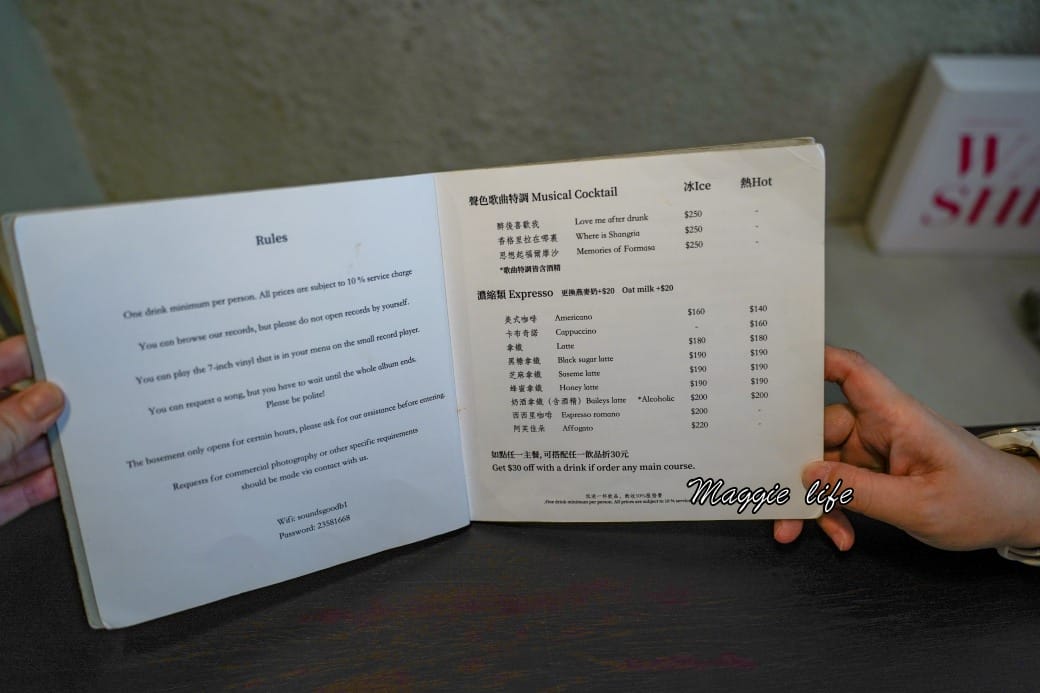 Rules
One drink minimum per person. All prices are subject to 10 % service charge
You can browse our records, but please do not open records by yourself.
You can play the 7-inch vinyl that is in your menu on the small record player.
You can request a song, but you have to wait until the whole album ends.
Please be polite!
The basement only opens for certain hours, please ask for our assistance before entering.
Requests for commercial photography or other specific requirements
should be made via contact with us.
Wifi: soundsgoodb1
Password: 23581668
聲色歌曲特調 Musical Cocktail 冰Ice 熱Hot
醉後喜歡我 Love me after drunk $250 -
香格里拉在哪裏 Where is Shangria $250 -
思想起福爾摩沙 Memories of Formasa $250 -
*歌曲特調皆含酒精
濃縮類 Expresso 更換燕麥奶+$20 Oat milk +$20
美式咖啡 Americano $160 $140
卡布奇諾 Cappuccino - $160
拿鐵 Latte $180 $180
黑糖拿鐵 Black sugar latte $190 $190
芝麻拿鐵 Saseme latte $190 $190
蜂蜜拿鐵 Honey latte $190 $190
奶酒拿鐵 (含酒精) Baileys latte *Alcoholic $200 $200
西西里咖啡 Espresso romano $200 -
阿芙佳朵 Affogato $220 -
如點任一主餐, 可搭配任一飲品折30元
Get $30 off with a drink if order any main course.
.One drink minimum per person. All prices are subject to 10 %
Maggie life
W
SHI